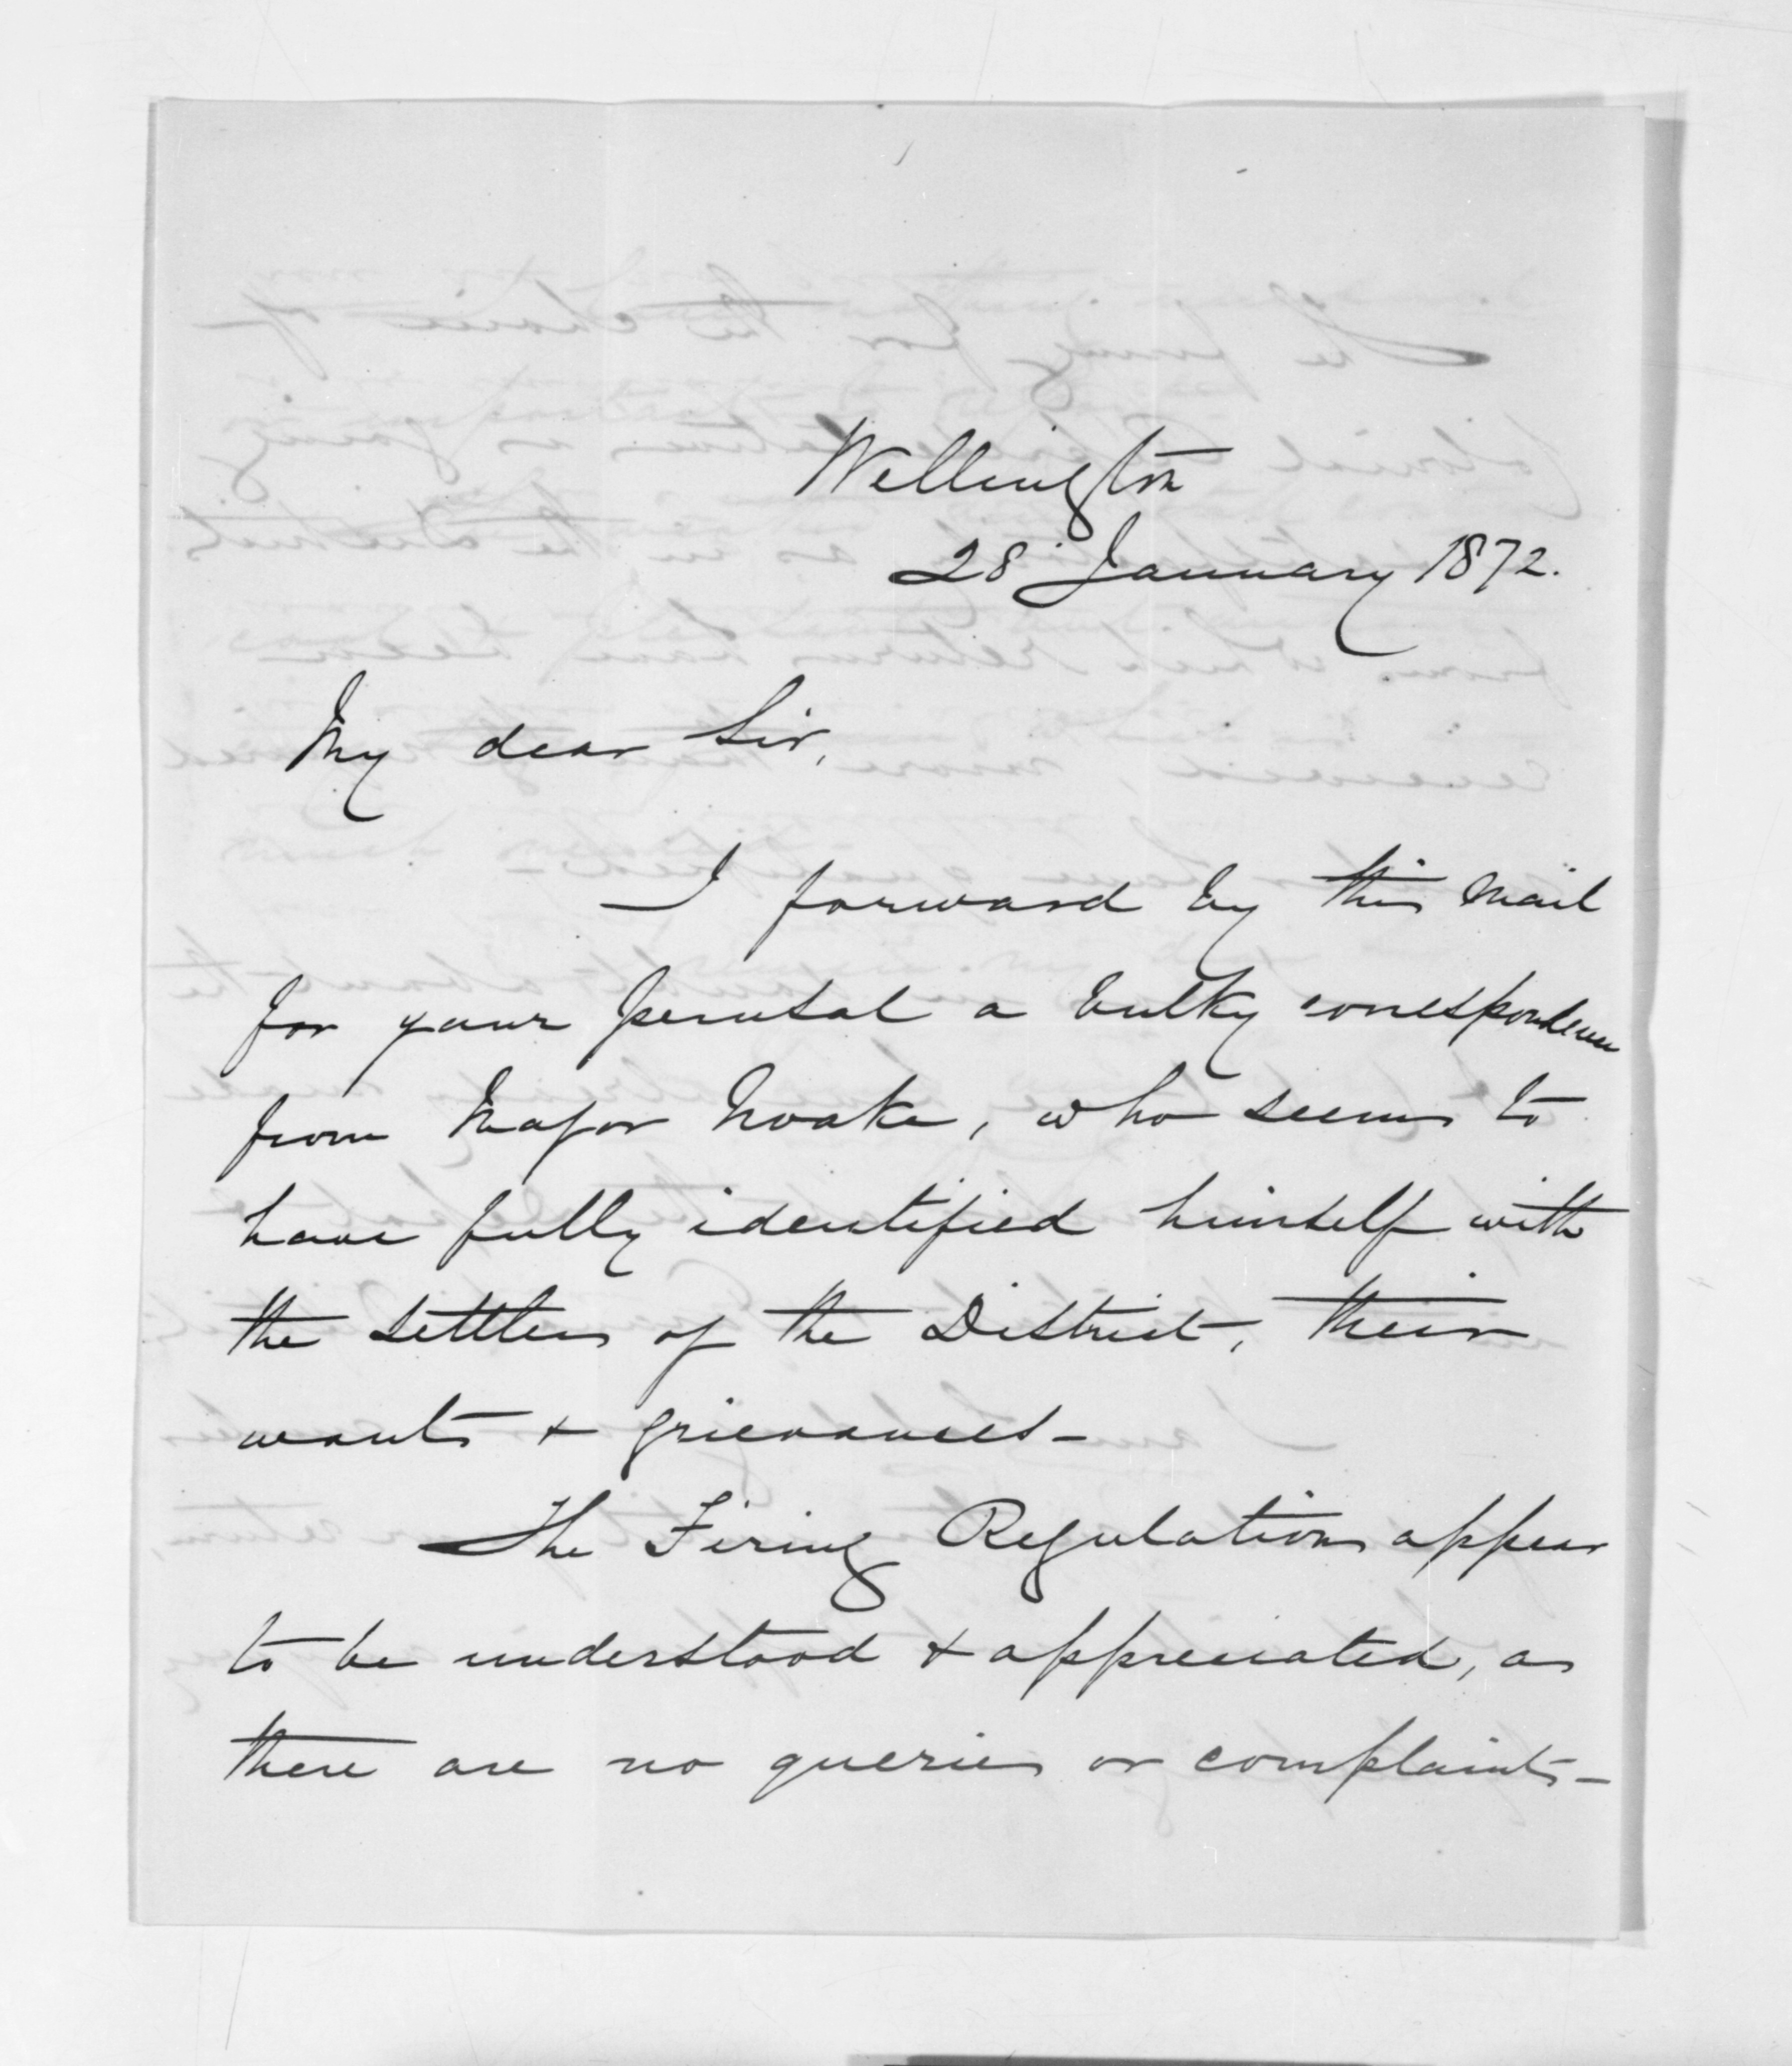 Wellington
28 January 1872.
My dear Sir,
I forward by this Mail
for your perusal a bulky correspondence
from Major Noake, who seems to
have fully identified himself with
the settlers of the District, their
wants & grievances -
The Firing Regulations appear
to be understood & appreciated, as
there are no queries or complaints -